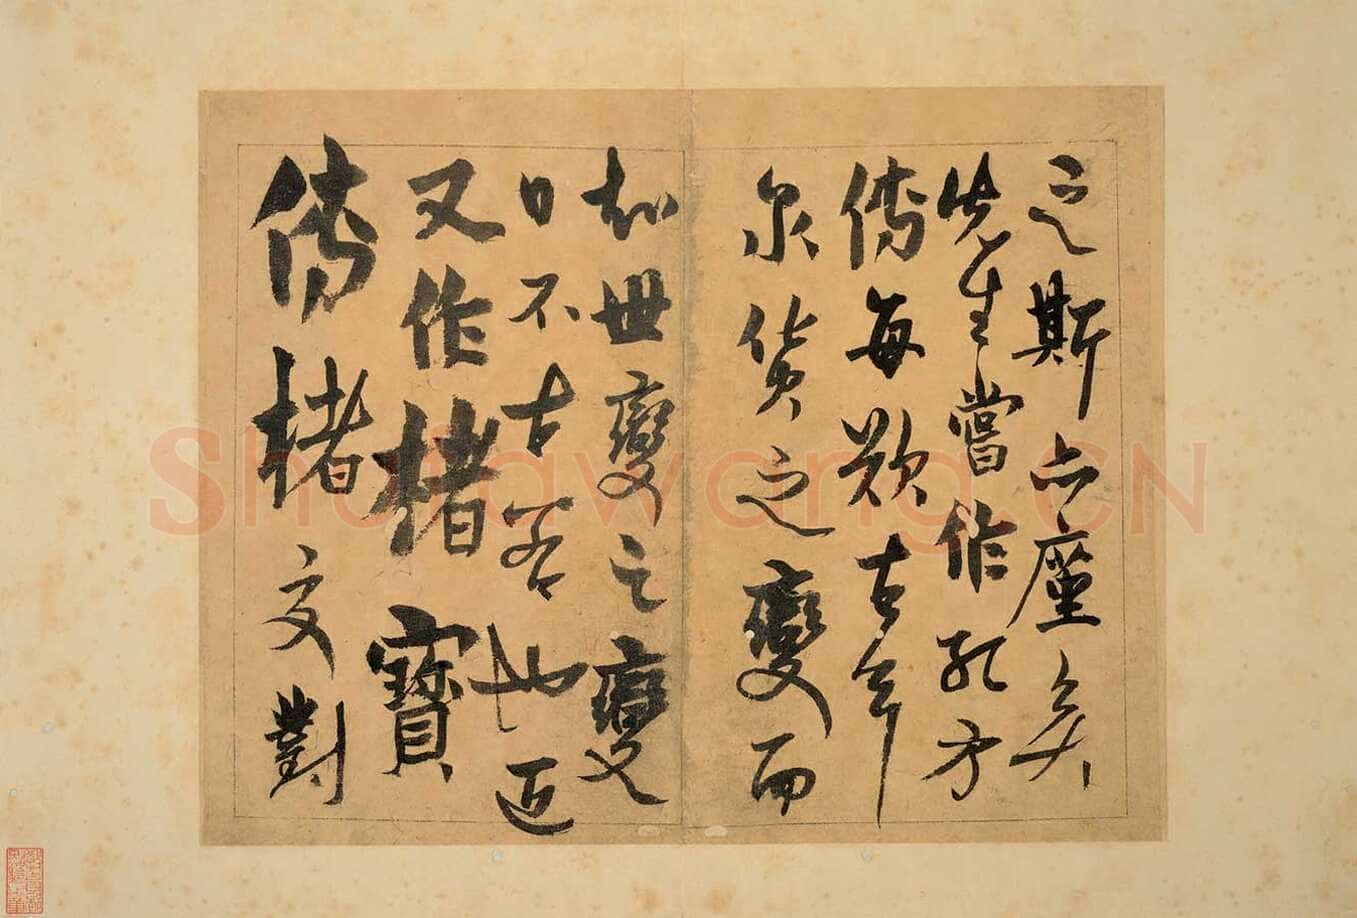 之斯亦矣
先生嘗作孔方
傳每歎古今
泉貨之變而
知世變之變
日不古若也近
又作楮寶
傳楮文對
shufawang.CN